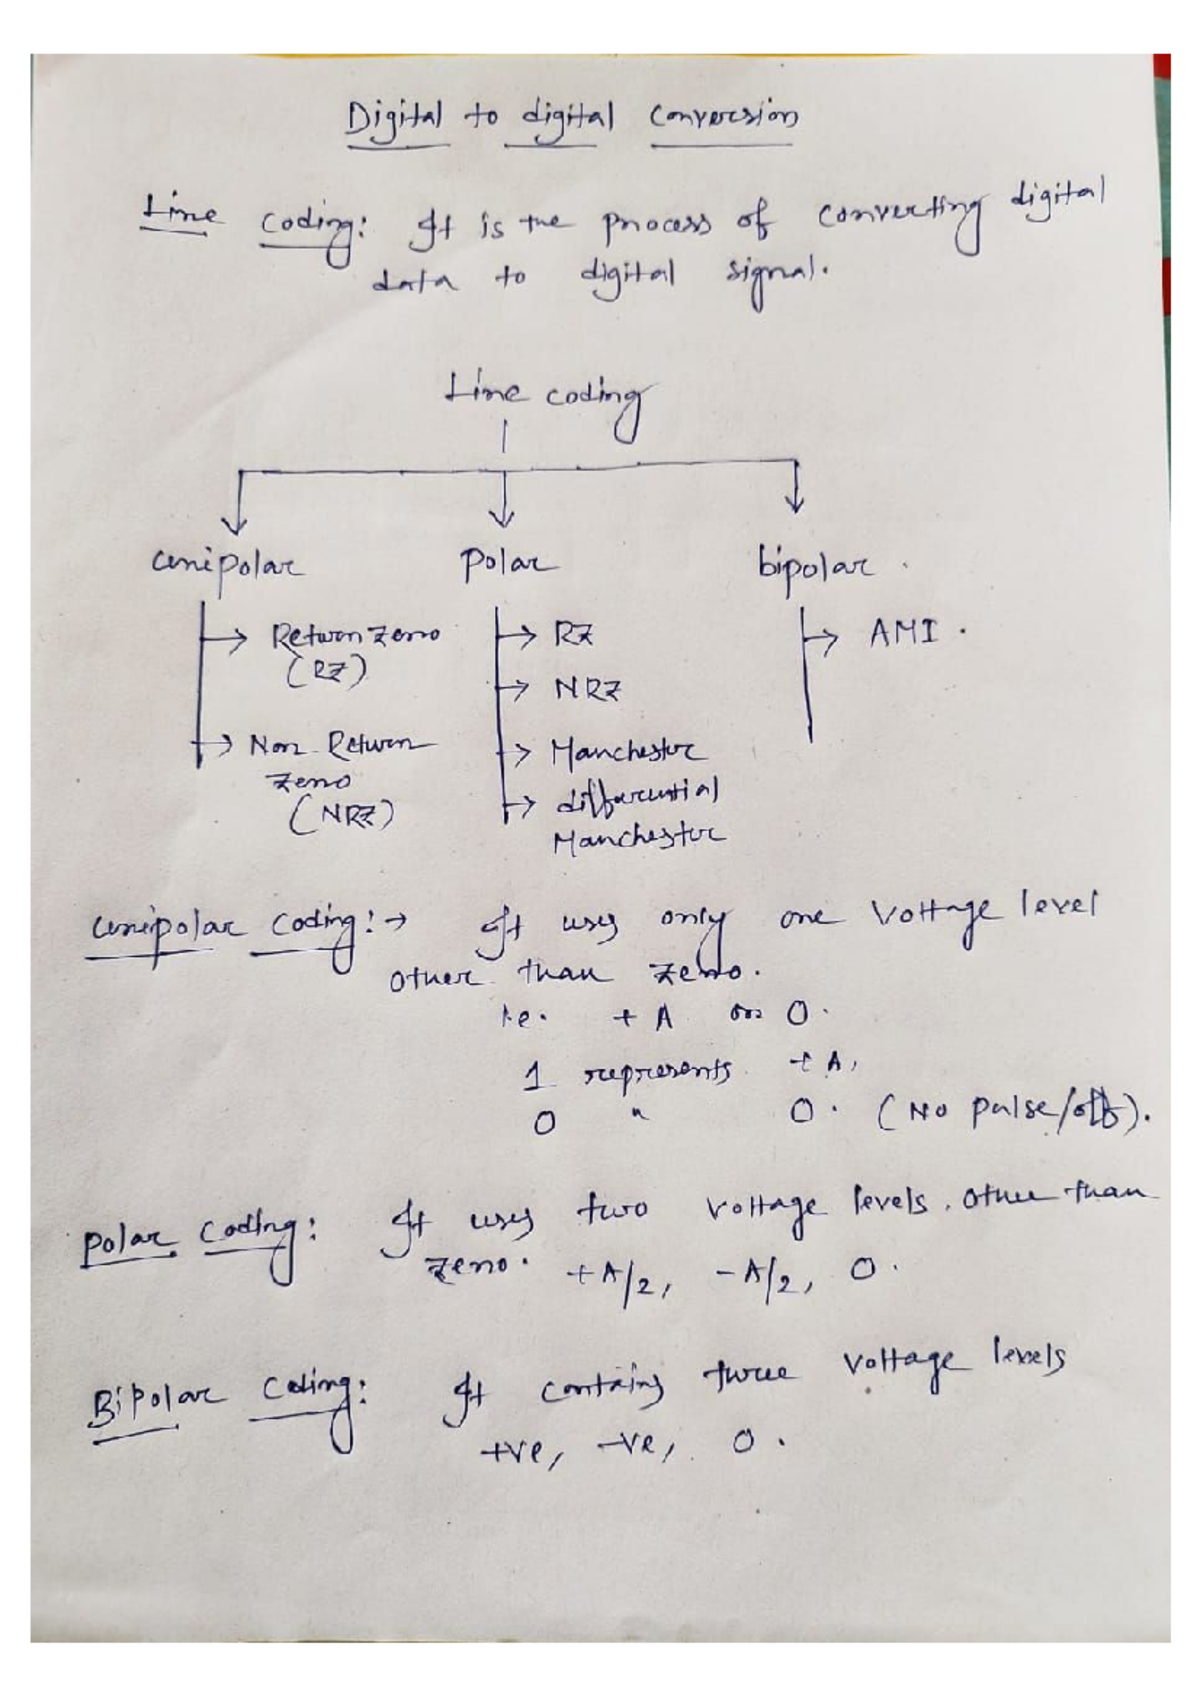 Digital to digital conversion
Line coding: It is the process of converting digital
data to digital signal.
Line coding
unipolar polar bipolar.
Return zero
(RZ)
Non Return
zero
(NRZ)
RZ
NRZ
Manchester
differential
Manchester
AMI.
unipolar coding:→ It uses only one voltage level
other than zero.
i.e. +A or 0.
1 represents +A,
0 " 0. (No pulse/off).
polar coding: It uses two voltage levels. other than
zero. +A/2, -A/2, 0.
Bipolar coding: It contains three voltage levels
+ve, -ve, 0.